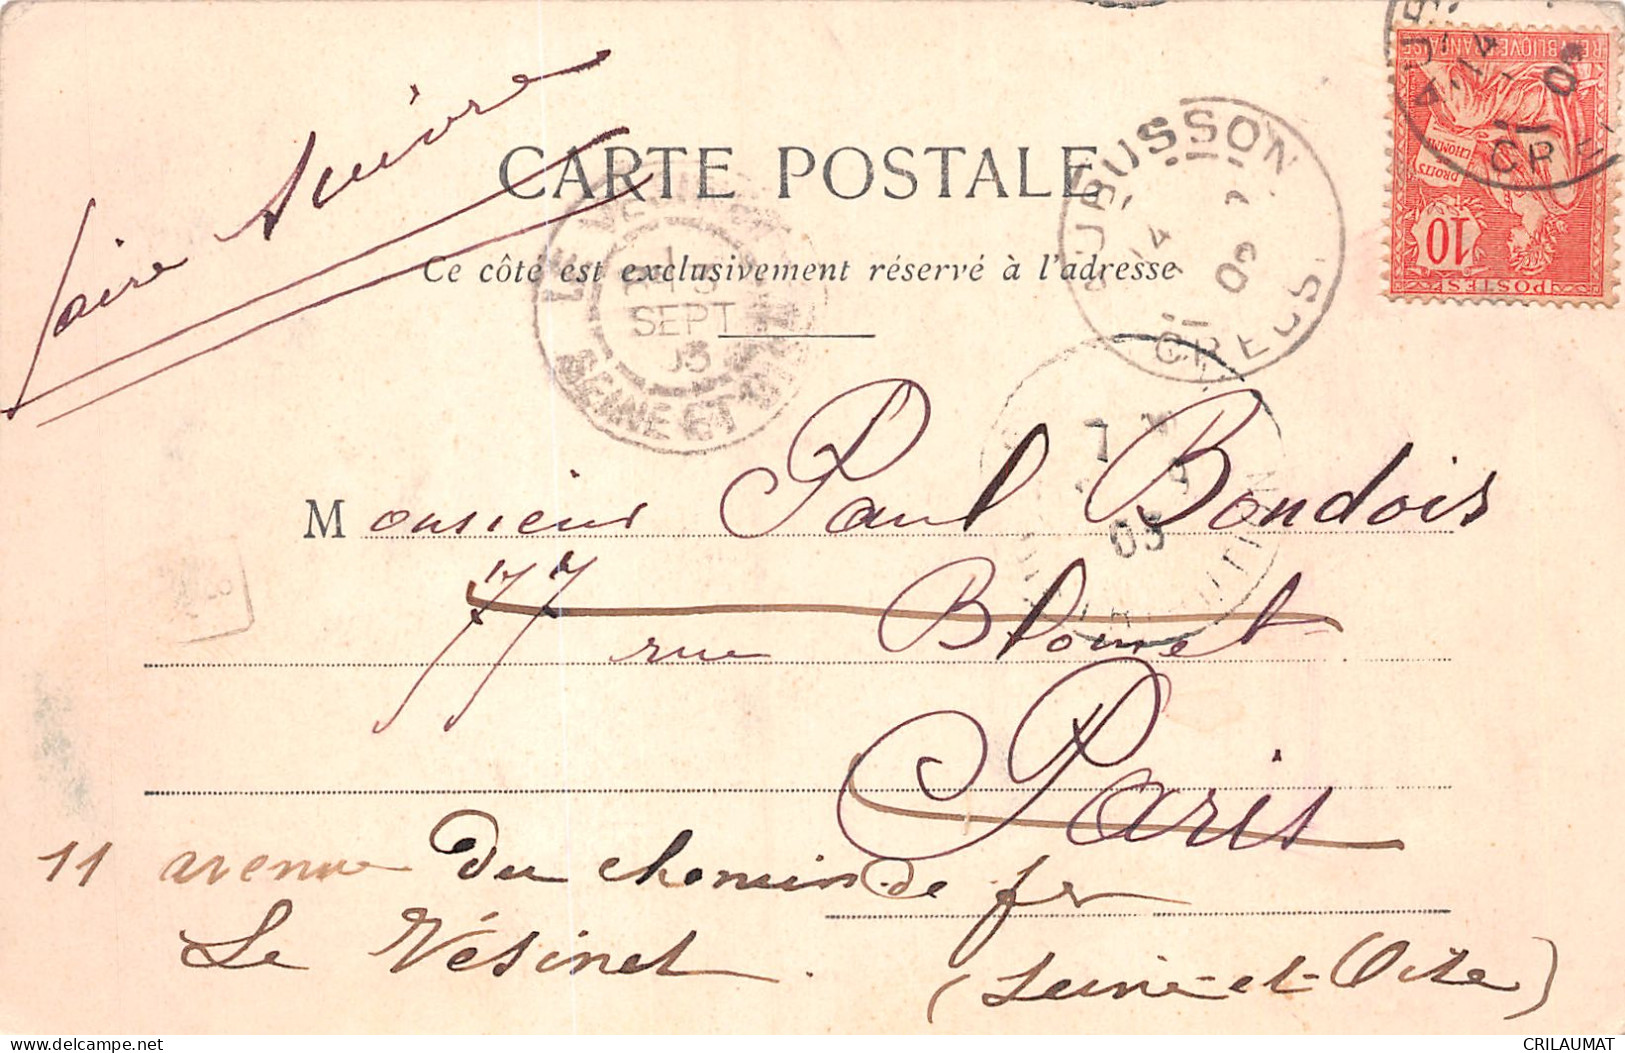 faire suivre
CARTE POSTALE
Ce côté est exclusivement réservé à l'adresse
AUBUSSON
CREUSE
RÉPUBLIQUE FRANÇAISE
DROITS
DE
L'HOMME
10
POSTES
LE VÉSINET
SEPT
03
SEINE ET OISE
7
03
Monsieur Paul Bondois
77 rue Blomet
Paris
11 avenue Du chemin de fer
Le Vésinet. (Seine-et-Oise)
CRILAUMAT
delcampe.net